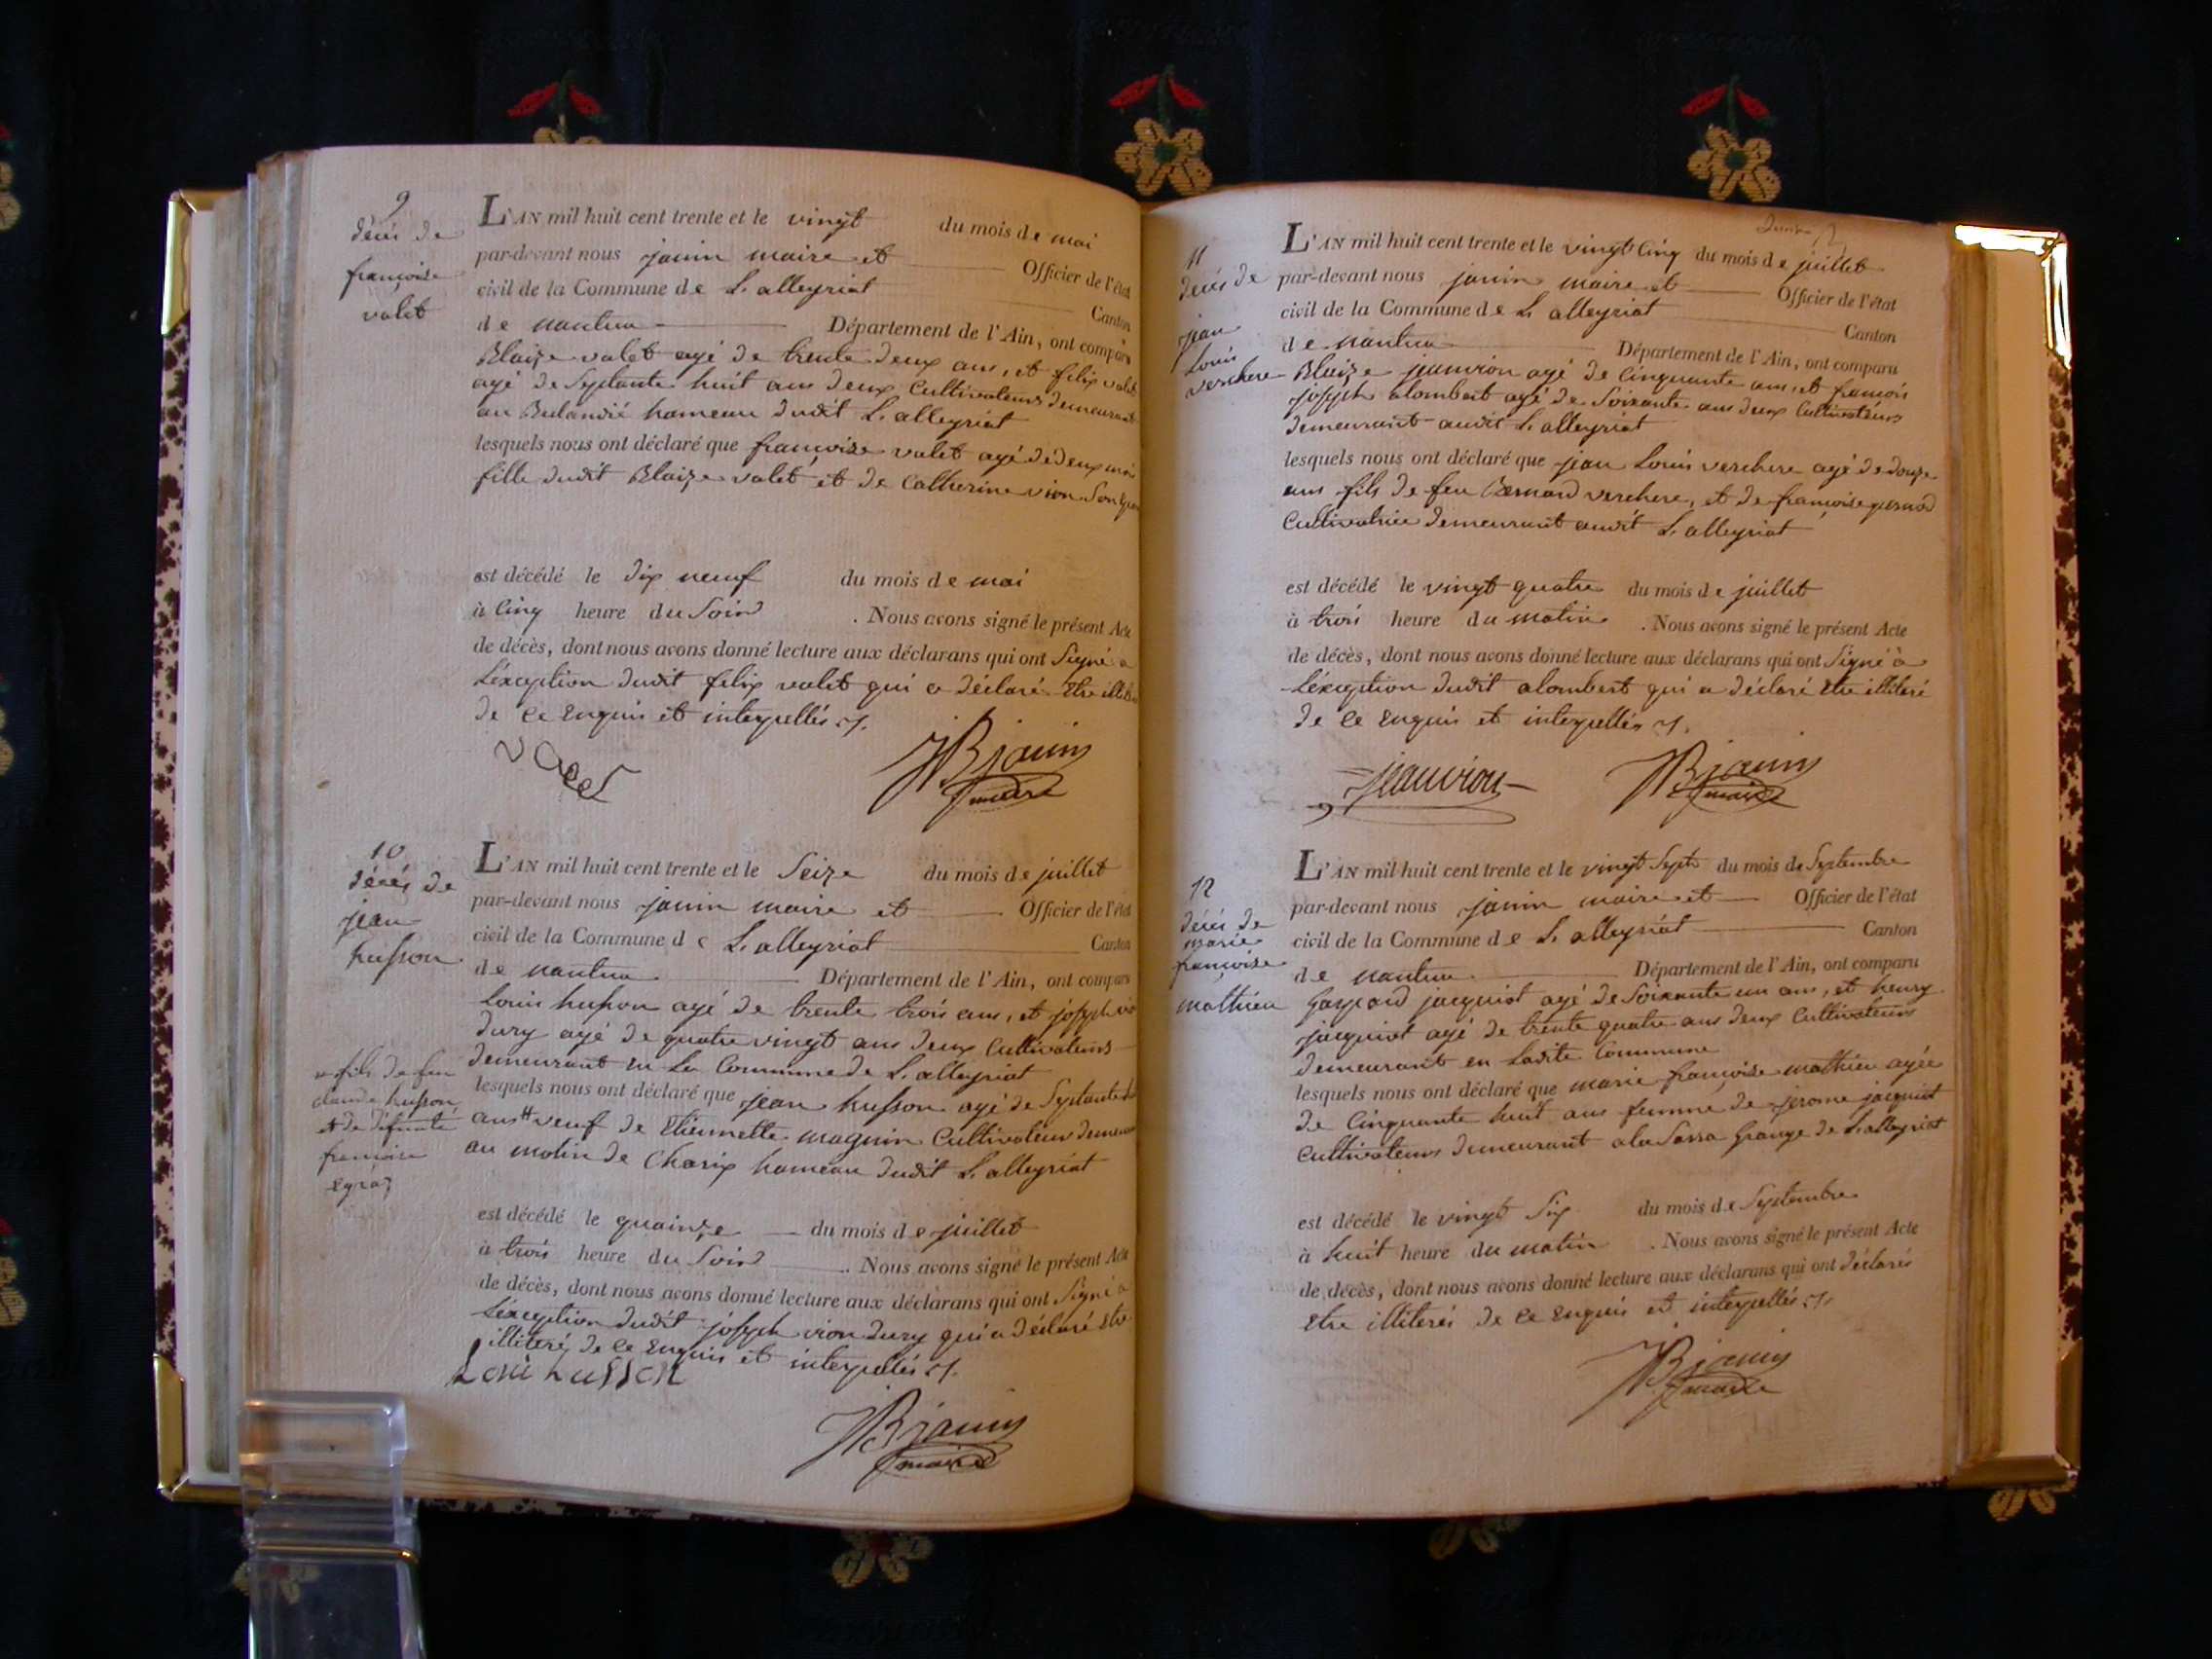 9
décès de
françoise
valet
L'AN mil huit cent trente et le vingt du mois de mai
par-devant nous janin maire et Officier de l'état
civil de la Commune de St. alleyriat Canton
de nantua Département de l'Ain, ont comparu
Blaize valet agé de trente deux ans, et felix valet
agé de Septante huit ans deux Cultivateurs demeurant
au Balandié hameau dudit St. alleyriat
lesquels nous ont déclaré que françoise valet agé de deux mois
fille dudit Blaize valet et de Catherine vion Son
est décédé le dix neuf du mois de mai
à Cinq heure du Soir . Nous avons signé le présent Acte
de décès, dont nous avons donné lecture aux déclarans qui ont Signé a
L'exception dudit felix valet qui a déclaré Etre
de Ce Enquis et interpellés
valet JB janin
maire
10
décès de
jean
husson
L'AN mil huit cent trente et le Seize du mois de juillet
par-devant nous janin maire et Officier de l'état
civil de la Commune de St. alleyriat Canton
de nantua Département de l'Ain, ont comparu
Louis husson agé de trente trois ans, et joseph vion
dury agé de quatre vingt ans deux Cultivateurs
demeurant en La Commune de St. alleyriat
lesquels nous ont déclaré que jean husson agé de Septante
ans # veuf de Etiennette magnin Cultivateur
au molin de Charix hameau dudit St. alleyriat
# fils de feu
claude husson
et de défunte
francoise
est décédé le quainze du mois de juillet
à trois heure du Soir . Nous avons signé le présent Acte
de décès, dont nous avons donné lecture aux déclarans qui ont Signé a
L'exception dudit joseph vion dury qui a déclaré Etre
illiteré de Ce Enquis et interpellés
Loui husson
JB janin
maire
11
décès de
jean
Louis
verchere
L'AN mil huit cent trente et le vingt Cinq du mois de juillet
par-devant nous janin maire et Officier de l'état
civil de la Commune de St. alleyriat Canton
de nantua Département de l'Ain, ont comparu
Blaize jeanvion agé de Cinquante ans, et francois
joseph alombert agé de Soixante ans deux Cultivateurs
demeurant audit St. alleyriat
lesquels nous ont déclaré que jean Louis verchere agé de douze
ans fils de feu Bernard verchere, et de françoise
Cultivatrice demeurant audit St. alleyriat
est décédé le vingt quatre du mois de juillet
à trois heure du matin . Nous avons signé le présent Acte
de décès, dont nous avons donné lecture aux déclarans qui ont Signé à
L'exception dudit alombert qui a déclaré Etre illiteré
de Ce Enquis et interpellés
jeanvion JB janin
maire
12
décès de
marie
françoise
mathieu
L'AN mil huit cent trente et le vingt Sept du mois de Septembre
par-devant nous janin maire et Officier de l'état
civil de la Commune de St. alleyriat Canton
de nantua Département de l'Ain, ont comparu
Gaspard jacquiot agé de Soixante un ans, et henry
jacquiot agé de trente quatre ans deux Cultivateurs
demeurant en Ladite Commune
lesquels nous ont déclaré que marie françoise mathieu agée
de Cinquante huit ans femme de jerome jacquiot
Cultivateurs demeurant a la Grange de St. alleyriat
est décédé le vingt Six du mois de Septembre
à huit heure du matin . Nous avons signé le présent Acte
de décès, dont nous avons donné lecture aux déclarans qui ont déclarés
Etre illiterés de Ce Enquis et interpellés
JB janin
maire